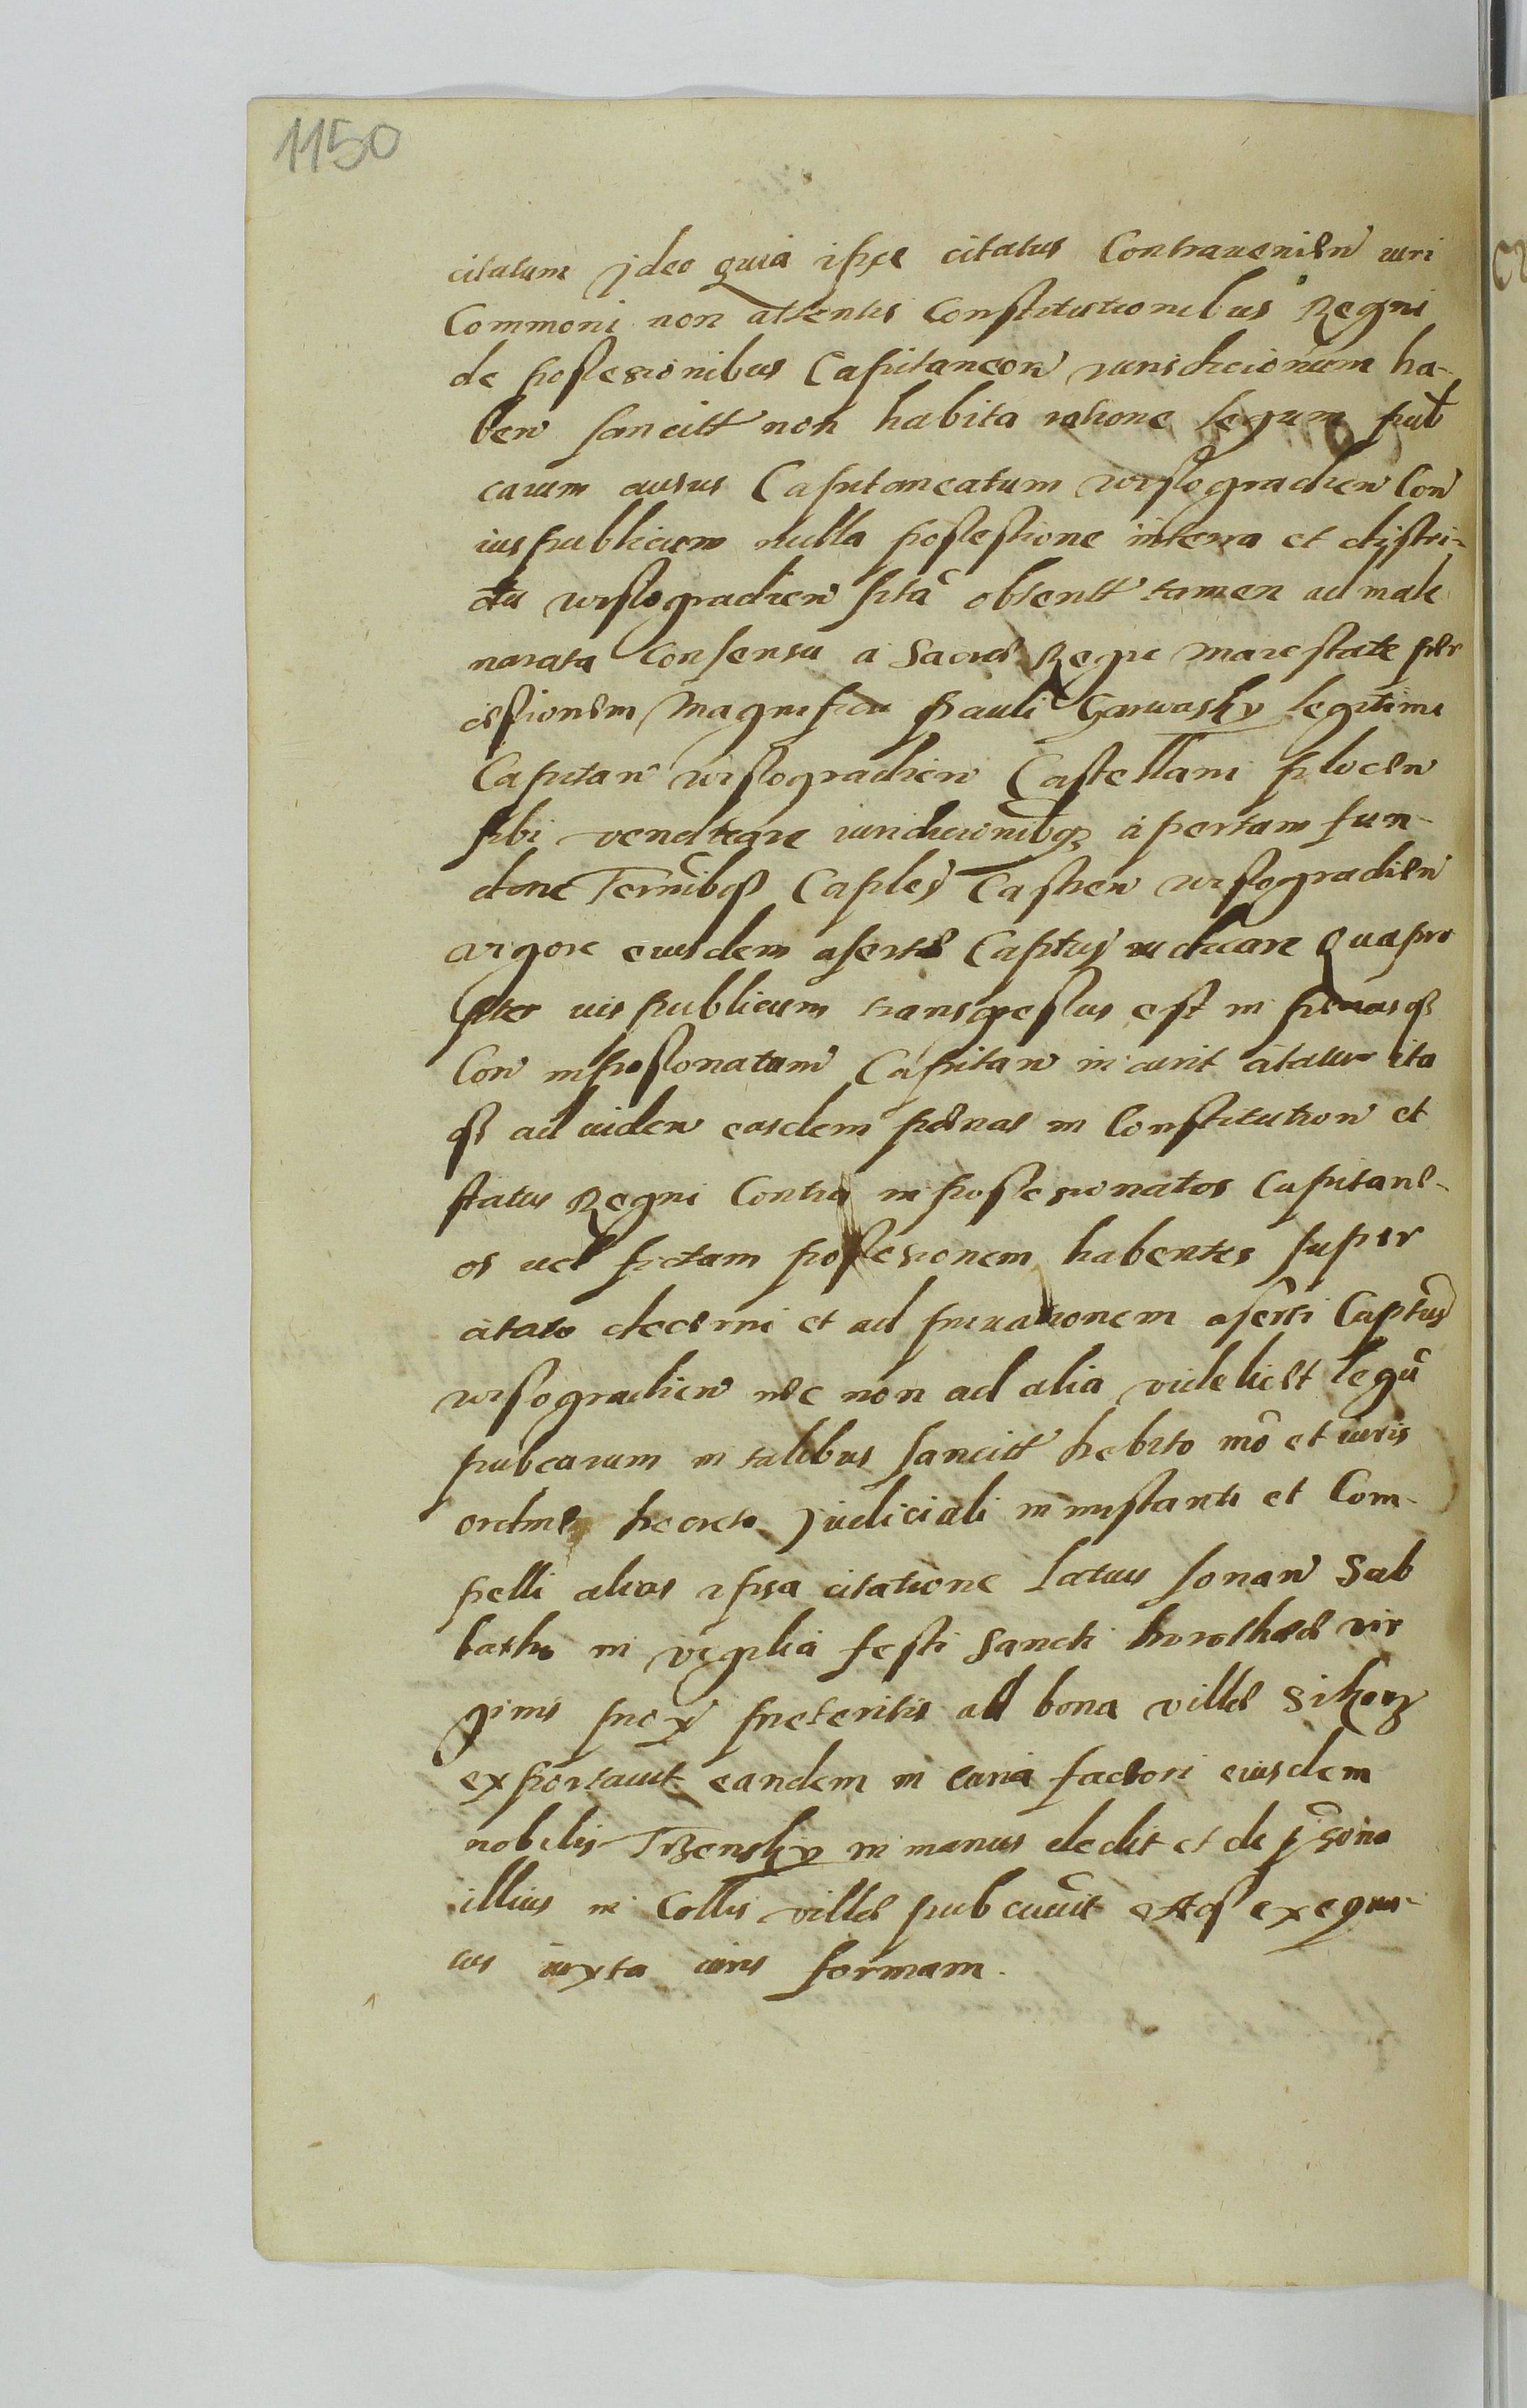 1150
citatum Ideo quia ipse citatus Contraueniẽn iuri
Commoni non attentis Constitutionibus Regni
de possesionibus Capitaneorũ iurisdicionum ha-
ben sancitt non habita ratione legum publ
carum ausus Capitaneatum wyssogradien Con
ius publicum nulla possessione in terra et distri-
ctu wyssogradien sita obtentt tamen ad male
narata Consensu a Sacra Regie Maiestate per
cessionem Magnifici Pauli Garwasky legitimi
Capitan wissogradien Castellani plocen
sibi venditare iuridicionibq apertam fun-
dare Termibq Caplej Castren wysogradien
vigore eiusdem aserte Captus iudicare Quapro
pter ius publicum transgressus est in penasq
Con inpossonatum Capitan incurit citatur ita
q ad uiden easdem penas in Constitution et
status Regni Contra inpossesionatos Capitane-
os uel fictam possesionem habentes super
citato decerni et ad priuationem aserti Captus
wysogradien nec non ad alia videlicet legũ
pubcarum in talibus sancitt debito mõ et iuris
ordine decreto Judiciali in instanti et Com-
pelli alias ipsa citatione latius sonan Sab
batho in vigilia festi Sancti Dorothee vir
ginis prox preteritis ad bona ville Sikorz
exportauit eandem in curia factori eiusdem
nobilis Trzensky in manus dedit et de psona
illius in Collis ville pubcauit estq exequu-
tus iuxta iuris formam.